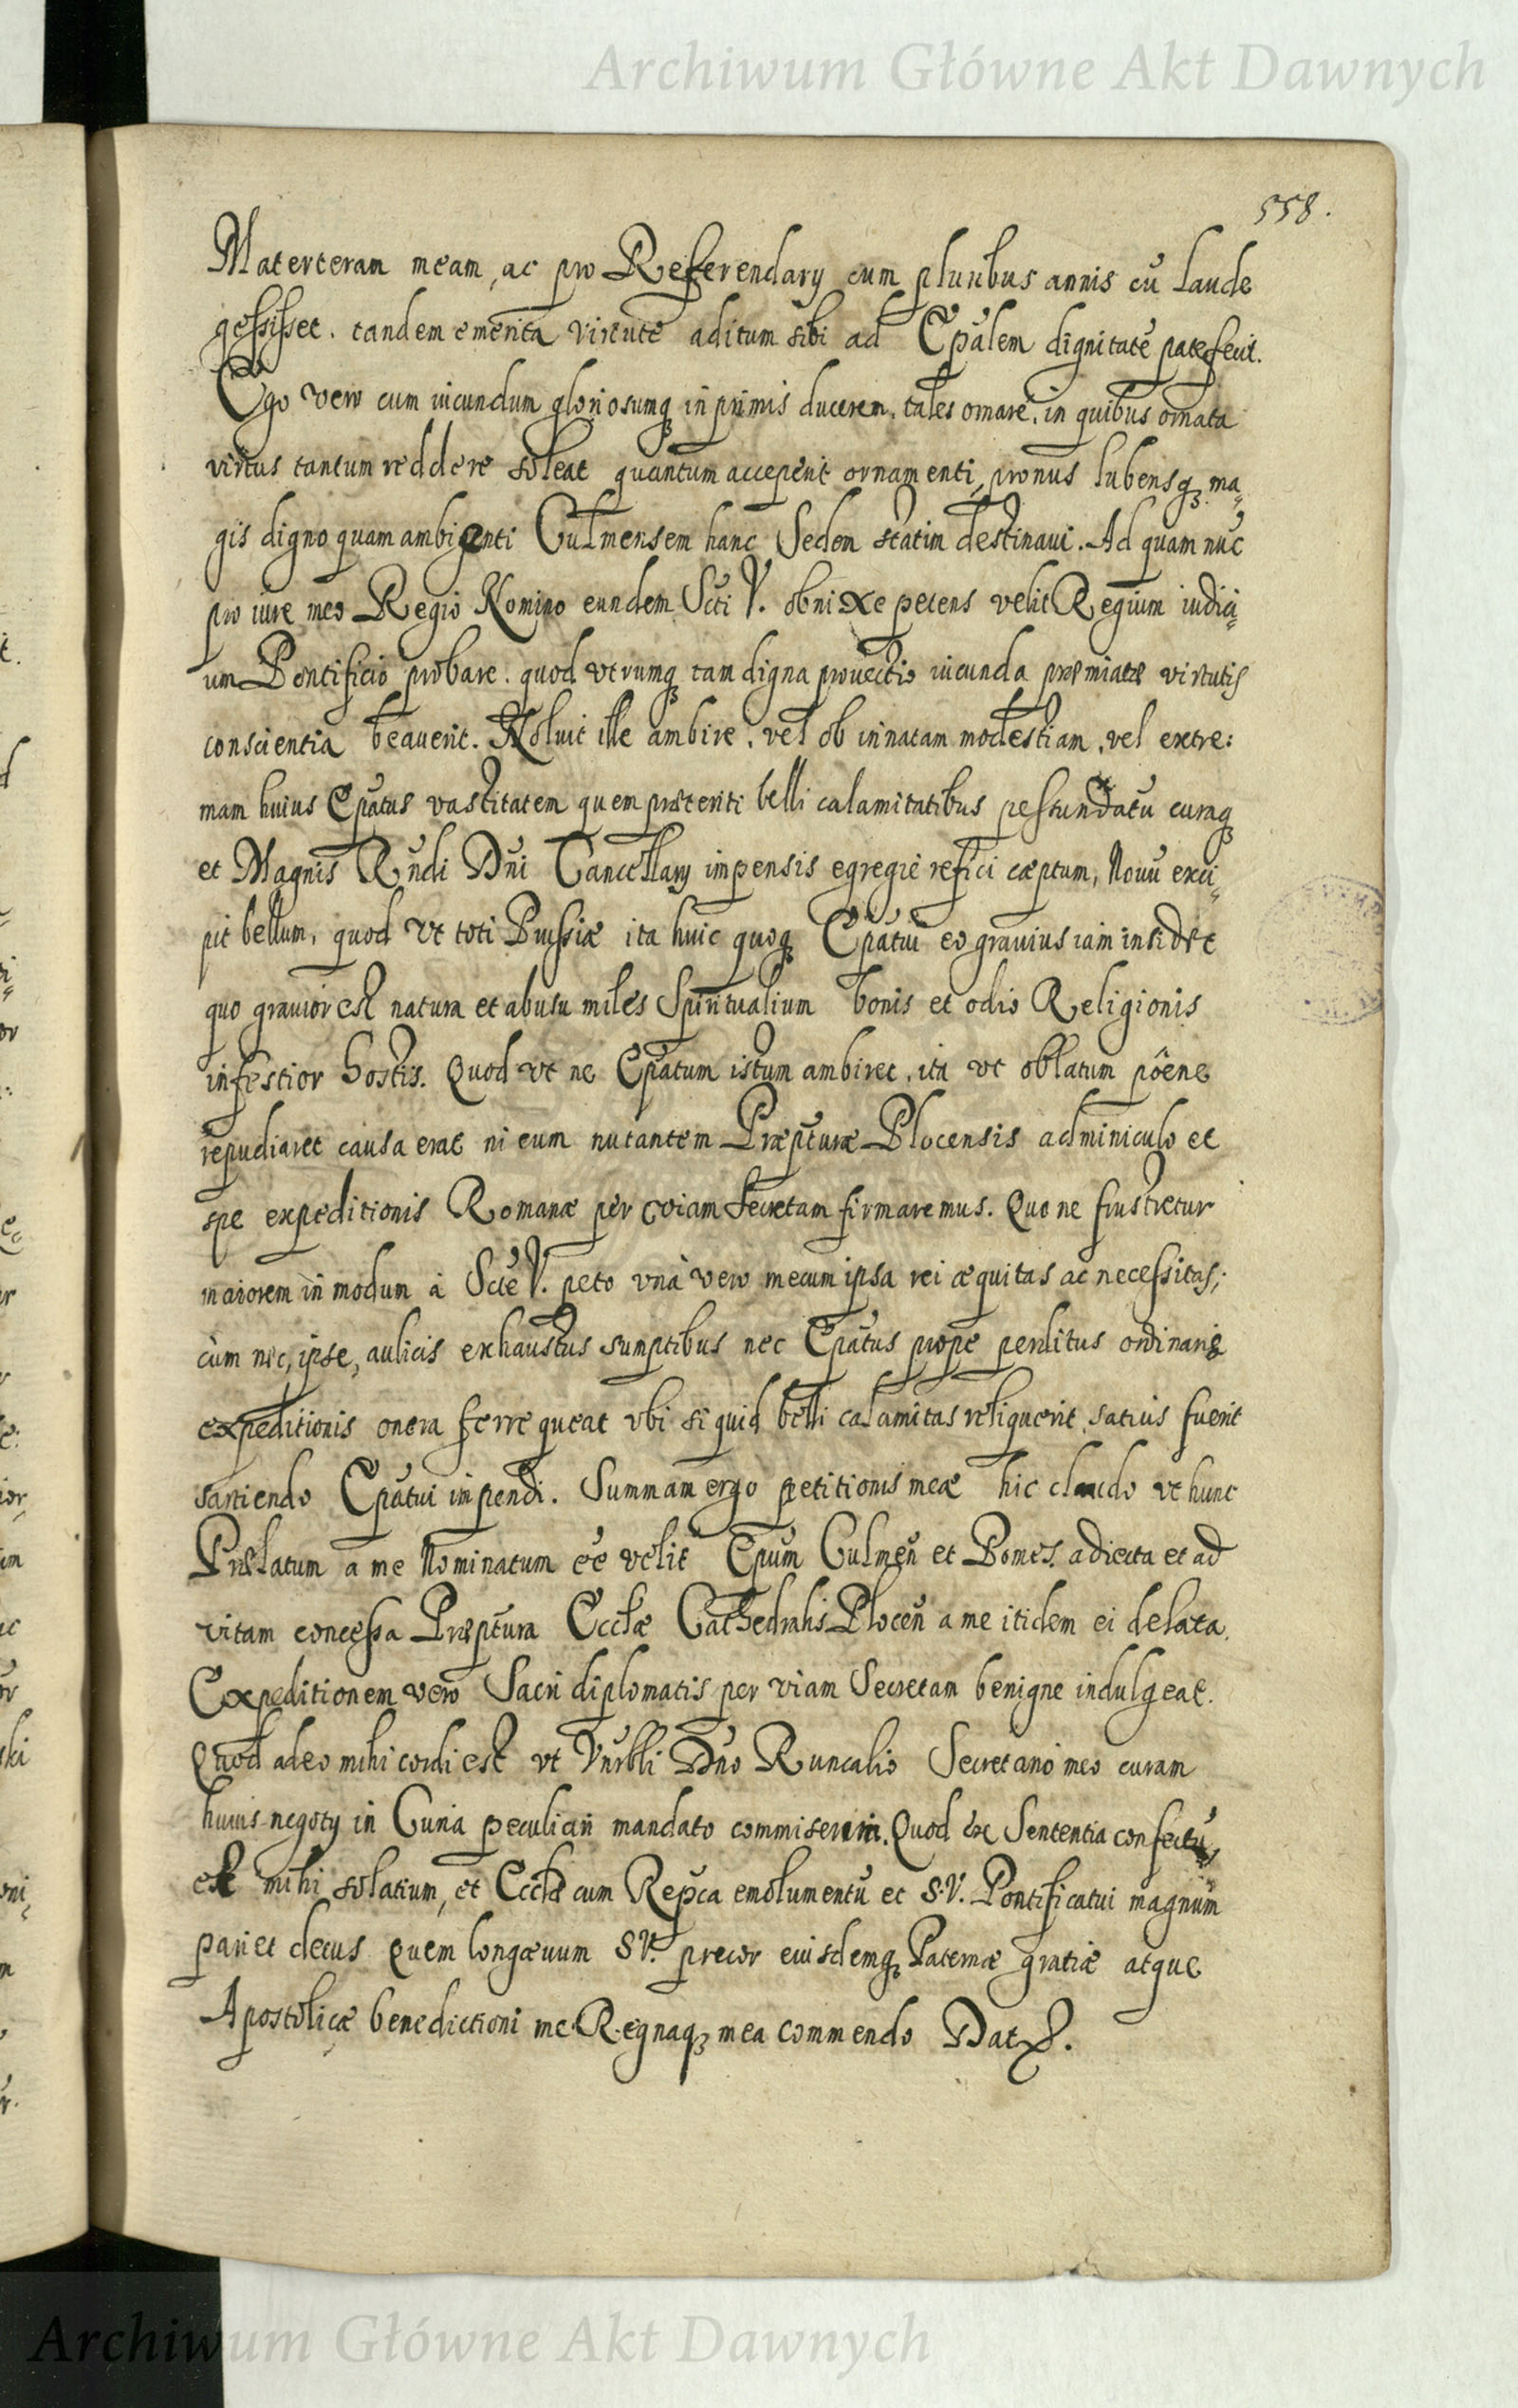 Archiwum Główne Akt Dawnych
558.
Materteram meam, ac pro Referendary cum pluribus annis cū laude
gessisset. tandem emerita virtute aditum sibi ad Epālem dignitatē patefecit.
Ego vero cum iucundum gloriosumq; in primis ducerem, tales ornare, in quibus ornata
virtus tantum reddere soleat quantum acceperit ornamenti, pronus lubensq; ma„
gis digno quam ambienti Culmensem hanc Sedem statim destinaui. Ad quam nūc
pro iure meo Regio Nomino eundem Scti V. obnixe petens velit Regium iudici„
um Pontificio probare. quod vtrumq; tam digna prouectio iucunda præmiatæ virtutis
conscientia beauerit. Noluit ille ambire, vel ob innatam modestiam, vel extre:
mam huius Epātus vastitatem quem præteriti belli calamitatibus pessundatū curaq;
et Magnis Rndi Dni Cancellary impensis egregiè refici cæptum, Nouū exci„
pit bellum, quod vt toti Prussiæ ita huic quoq; Epātui eo grauius iam insidet
quo grauior est natura et abusu miles Spiritualium bonis et odio Religionis
infestior hostis. Quod vt ne Epātum istum ambiret, ita vt oblatum pœne
repudiaret causa erat ni eum nutantem Præpturæ Plocensis adminiculo et
spe expeditionis Romanæ per viam secretam firmaremus. Quo ne frustretur
maiorem in modum à Scte V. peto vnà vero mecum ipsa rei æquitas ac necessitas;
cùm nec, ipse, aulicis exhaustus sumptibus nec Epātus prope perditus ordinariæ
expeditionis onera ferre queat vbi si quid belli calamitas reliquerit, satius fuerit
sartiendo Epātui impendi. Summam ergo petitionis meæ hic claudo vt hunc
Prælatum a me Nominatum eē velit Epūm Culmeñ et Pomes. adiecta et ad
vitam concessa Præptura Ecclæ Cathedralis Ploceñ a me itidem ei delata.
Expeditionem vero Sacri diplomatis per viam Secretam benigne indulgeat.
Quod adeo mihi cordi est vt Vnrbli Dno Runcalio Secretario meo curam
huius negoty in Curia peculiari mandato commiserim. Quod ex Sententia confectū
est mihi solatium, et Ecclæ cum Repca emolumentū et S.V. Pontificatui magnum
pariet decus Quem longæuum S V. precor eiusdemq; Paternæ gratiæ atque
Apostolicæ benedictioni me Regnaq; mea commendo Dat.
Archiwum Główne Akt Dawnych